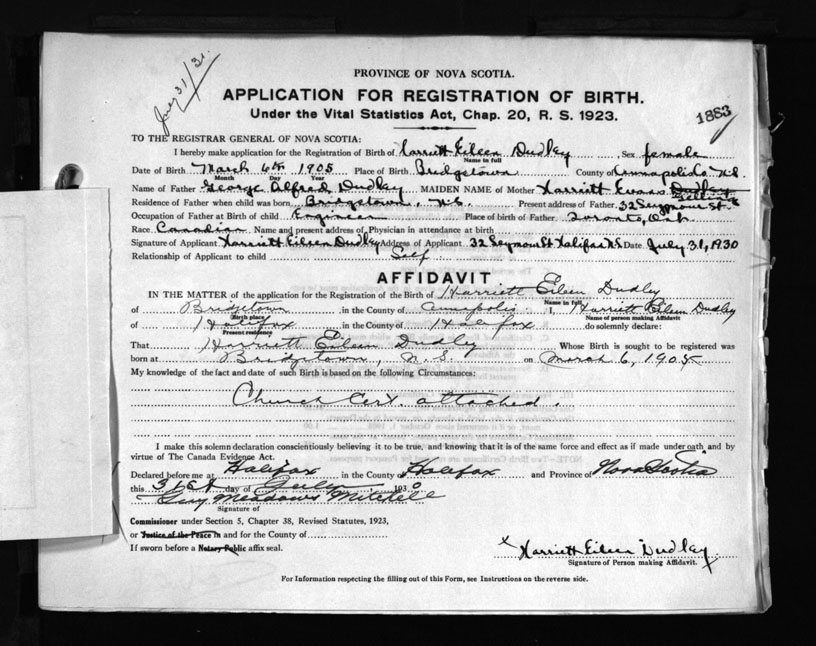 July 31/31.
PROVINCE OF NOVA SCOTIA.
APPLICATION FOR REGISTRATION OF BIRTH.
Under the Vital Statistics Act, Chap. 20, R. S. 1923.
1883
TO THE REGISTRAR GENERAL OF NOVA SCOTIA:
I hereby make application for the Registration of Birth of Harriett Eileen Dudley Sex female
Name in full
Date of Birth March 6th 1905 Place of Birth Bridgetown County of Annapolis N.S.
Month Day Year
Name of Father George Alfred Dudley MAIDEN NAME of Mother Harriett Evans Dudley
Residence of Father when child was born Bridgetown, N.S. Present address of Father 32 Seymour St
Occupation of Father at Birth of child Engineer Place of birth of Father Toronto, Ont.
Race Canadian Name and present address of Physician in attendance at birth
Signature of Applicant Harriett Eileen Dudley Address of Applicant 32 Seymour St Halifax N.S Date July 31, 1930
Relationship of Applicant to child Self
AFFIDAVIT
IN THE MATTER of the application for the Registration of the Birth of Harriett Eileen Dudley
Name in full
of Bridgetown in the County of Annapolis I, Harriett Eileen Dudley
Birth place Name of person making Affidavit
of Halifax in the County of Halifax do solemnly declare:
Present residence
That Harriett Eileen Dudley Whose Birth is sought to be registered was
born at Bridgetown, N.S. on March 6, 1905
My knowledge of the fact and date of such Birth is based on the following Circumstances:
Church Cert attached.
I make this solemn declaration conscientiously believing it to be true, and knowing that it is of the same force and effect as if made under oath and by
virtue of The Canada Evidence Act.
Declared before me at Halifax in the County Halifax and Province of Nova Scotia
this 31st day of July 1930
Guy Meadows Mitchell
Signature of
Commissioner under Section 5, Chapter 38, Revised Statutes, 1923,
or Justice of the Peace in and for the County of
If sworn before a Notary Public affix seal.
x Harriett Eileen Dudley
Signature of Person making Affidavit.
For Information respecting the filling out of this Form, see Instructions on the reverse side.